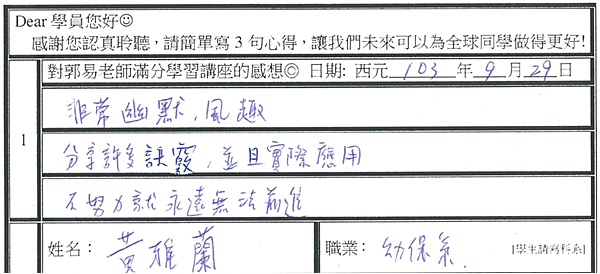 Dear 學員您好☺
感謝您認真聆聽，請簡單寫 3 句心得，讓我們未來可以為全球同學做得更好!
對郭易老師滿分學習講座的感想◎ 日期: 西元 103 年 9 月 29 日
1
非常幽默，風趣
分享許多訣竅，並且實際應用
不努力就永遠無法前進
姓名： 黃雅蘭 職業： 幼保系 [學生請寫科系]